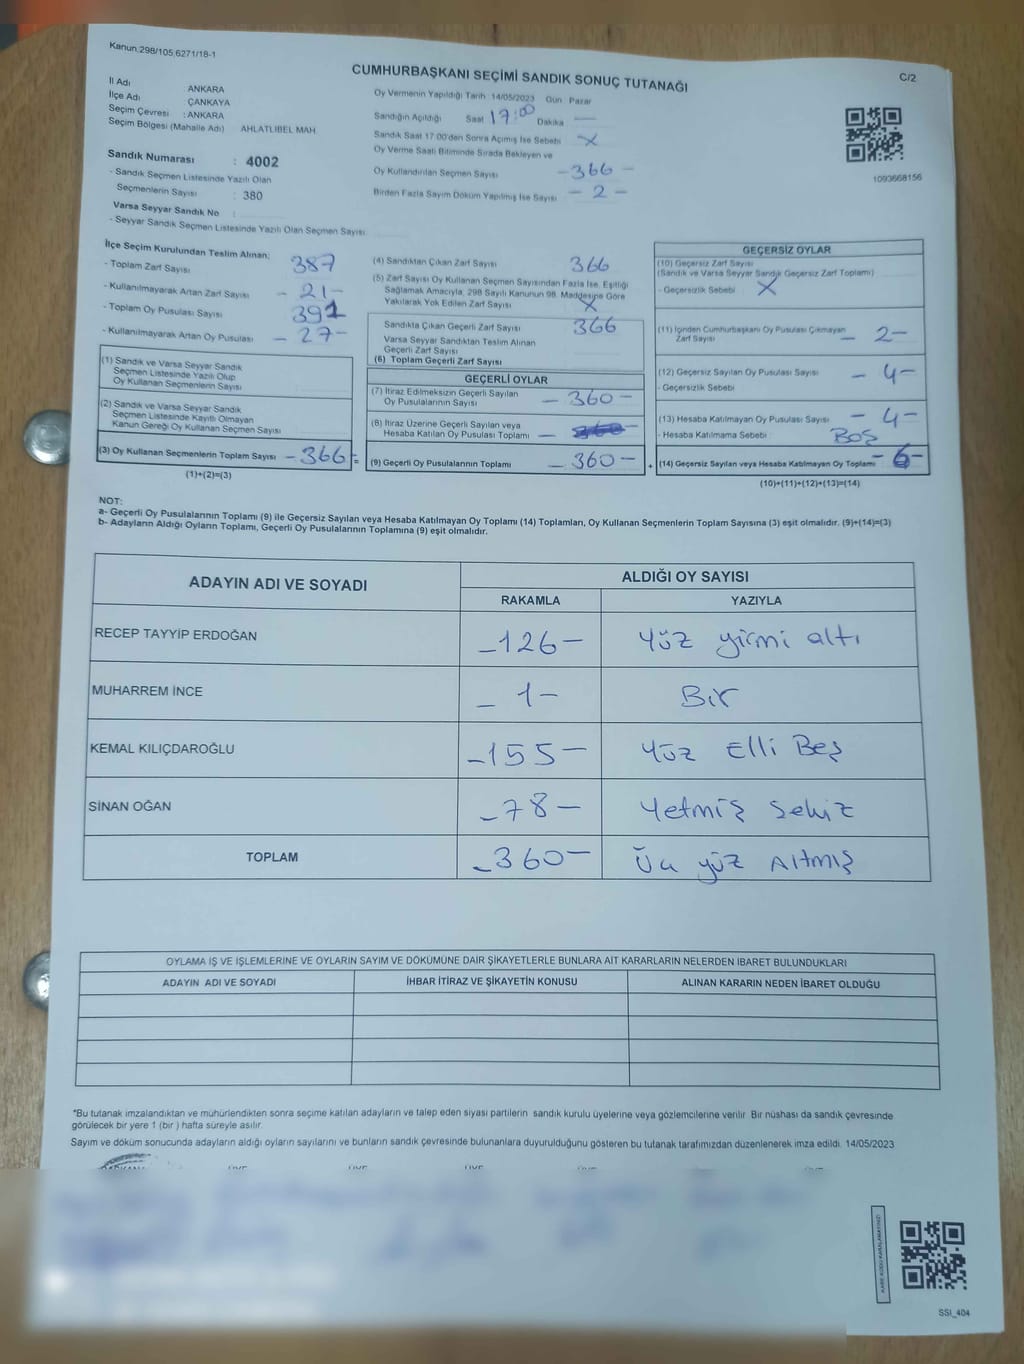 Kanun:298/105,6271/18-1
C/2
CUMHURBAŞKANI SEÇİMİ SANDIK SONUÇ TUTANAĞI
İl Adı ANKARA
İlçe Adı ÇANKAYA
Seçim Çevresi : ANKARA
Seçim Bölgesi (Mahalle Adı) AHLATLIBEL MAH.
Sandık Numarası : 4002
- Sandık Seçmen Listesinde Yazılı Olan
Seçmenlerin Sayısı : 380
Varsa Seyyar Sandık No :
- Seyyar Sandık Seçmen Listesinde Yazılı Olan Seçmen Sayısı
Oy Vermenin Yapıldığı Tarih :14/05/2023 Gün Pazar
Sandığın Açıldığı Saat 17:00 Dakika —
Sandık Saat 17.00'den Sonra Açılmış İse Sebebi X
Oy Verme Saati Bitiminde Sırada Bekleyen ve
Oy Kullandırılan Seçmen Sayısı - 366 -
Birden Fazla Sayım Döküm Yapılmış İse Sayısı - 2 -
1093668156
İlçe Seçim Kurulundan Teslim Alınan:
- Toplam Zarf Sayısı 387
- Kullanılmayarak Artan Zarf Sayısı - 21 -
- Toplam Oy Pusulası Sayısı 391
- Kullanılmayarak Artan Oy Pusulası - 27 -
(1) Sandık ve Varsa Seyyar Sandık
Seçmen Listesinde Yazılı Olup
Oy Kullanan Seçmenlerin Sayısı
(2) Sandık ve Varsa Seyyar Sandık
Seçmen Listesinde Kayıtlı Olmayan
Kanun Gereği Oy Kullanan Seçmen Sayısı
(3) Oy Kullanan Seçmenlerin Toplam Sayısı - 366 =
(1)+(2)=(3)
(4) Sandıktan Çıkan Zarf Sayısı 366
(5) Zarf Sayısı Oy Kullanan Seçmen Sayısından Fazla İse, Eşitliği
Sağlamak Amacıyla, 298 Sayılı Kanunun 98. Maddesine Göre
Yakılarak Yok Edilen Zarf Sayısı X
Sandıkta Çıkan Geçerli Zarf Sayısı 366
Varsa Seyyar Sandıktan Teslim Alınan
Geçerli Zarf Sayısı
(6) Toplam Geçerli Zarf Sayısı
GEÇERLİ OYLAR
(7) İtiraz Edilmeksizin Geçerli Sayılan
Oy Pusulalarının Sayısı - 360 -
(8) İtiraz Üzerine Geçerli Sayılan veya
Hesaba Katılan Oy Pusulası Toplamı
(9) Geçerli Oy Pusulalarının Toplamı - 360 - +
GEÇERSİZ OYLAR
(10) Geçersiz Zarf Sayısı
(Sandık ve Varsa Seyyar Sandık Geçersiz Zarf Toplamı)
- Geçersizlik Sebebi X
(11) İçinden Cumhurbaşkanı Oy Pusulası Çıkmayan
Zarf Sayısı - 2 -
(12) Geçersiz Sayılan Oy Pusulası Sayısı - 4 -
- Geçersizlik Sebebi
(13) Hesaba Katılmayan Oy Pusulası Sayısı - 4 -
- Hesaba Katılmama Sebebi BOŞ
(14) Geçersiz Sayılan veya Hesaba Katılmayan Oy Toplamı - 6 -
(10)+(11)+(12)+(13)=(14)
NOT:
a- Geçerli Oy Pusulalarının Toplamı (9) ile Geçersiz Sayılan veya Hesaba Katılmayan Oy Toplamı (14) Toplamları, Oy Kullanan Seçmenlerin Toplam Sayısına (3) eşit olmalıdır. (9)+(14)=(3)
b- Adayların Aldığı Oyların Toplamı, Geçerli Oy Pusulalarının Toplamına (9) eşit olmalıdır.
ADAYIN ADI VE SOYADI ALDIĞI OY SAYISI
RAKAMLA YAZIYLA
RECEP TAYYİP ERDOĞAN - 126 - Yüz yirmi altı
MUHARREM İNCE - 1 - Bir
KEMAL KILIÇDAROĞLU - 155 - Yüz Elli Beş
SİNAN OĞAN - 78 - Yetmiş Sekiz
TOPLAM - 360 - Üç yüz Altmış
OYLAMA İŞ VE İŞLEMLERİNE VE OYLARIN SAYIM VE DÖKÜMÜNE DAİR ŞİKAYETLERLE BUNLARA AİT KARARLARIN NELERDEN İBARET BULUNDUKLARI
ADAYIN ADI VE SOYADI İHBAR İTİRAZ VE ŞİKAYETİN KONUSU ALINAN KARARIN NEDEN İBARET OLDUĞU
*Bu tutanak imzalandıktan ve mühürlendikten sonra seçime katılan adayların ve talep eden siyasi partilerin sandık kurulu üyelerine veya gözlemcilerine verilir. Bir nüshası da sandık çevresinde
görülecek bir yere 1 (bir) hafta süreyle asılır.
Sayım ve döküm sonucunda adayların aldığı oyların sayılarını ve bunların sandık çevresinde bulunanlara duyurulduğunu gösteren bu tutanak tarafımızdan düzenlenerek imza edildi. 14/05/2023
SSI_404